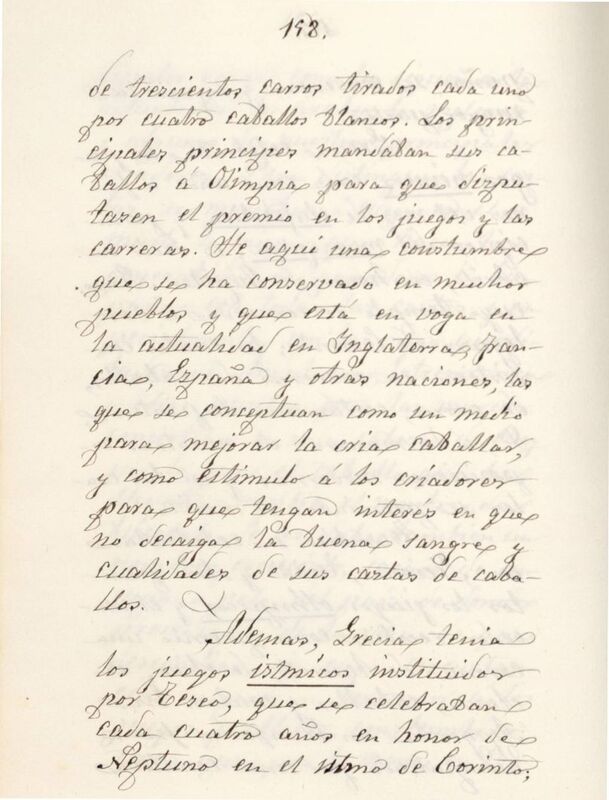 198.
de trescientos carros tirados cada uno
por cuatro caballos blancos. Los prin-
cipales principes mandaban sus ca-
ballos á Olimpia para que dizpu-
tasen el premio en los juegos y las
carreras. He aqui una constumbre
que se ha conservado en muchos
pueblos y que está en voga en
la actualidad en Inglaterra, Fran-
cia, España y otras naciones, las
que se conceptuan como un medio
para mejorar la cria caballar,
y como estimulo á los criadores
para que tengan interés en que
no decaiga la buena sangre y
cualidades de sus castas de caba-
llos.
Ademas, Grecia tenia
los juegos istmicos instituidos
por Teseo, que se celebraban
cada cuatro años en honor de
Neptuno en el istmo de Corinto;